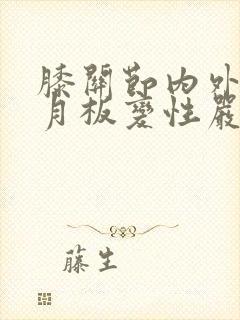 膝關節内外
月板變性嚴
藤生